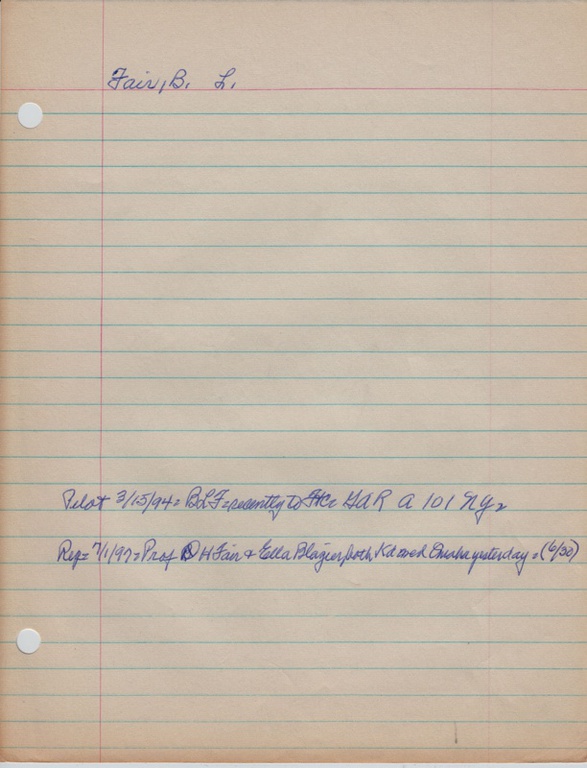 Fair, B. L.
Pilot 3/15/94= BLF=recently to HC= GAR A 101 NY=
Rep= 7/1/97= Prof D H Fair & Ella Blazier, both Kd wed Omaha yesterday = (6/30)